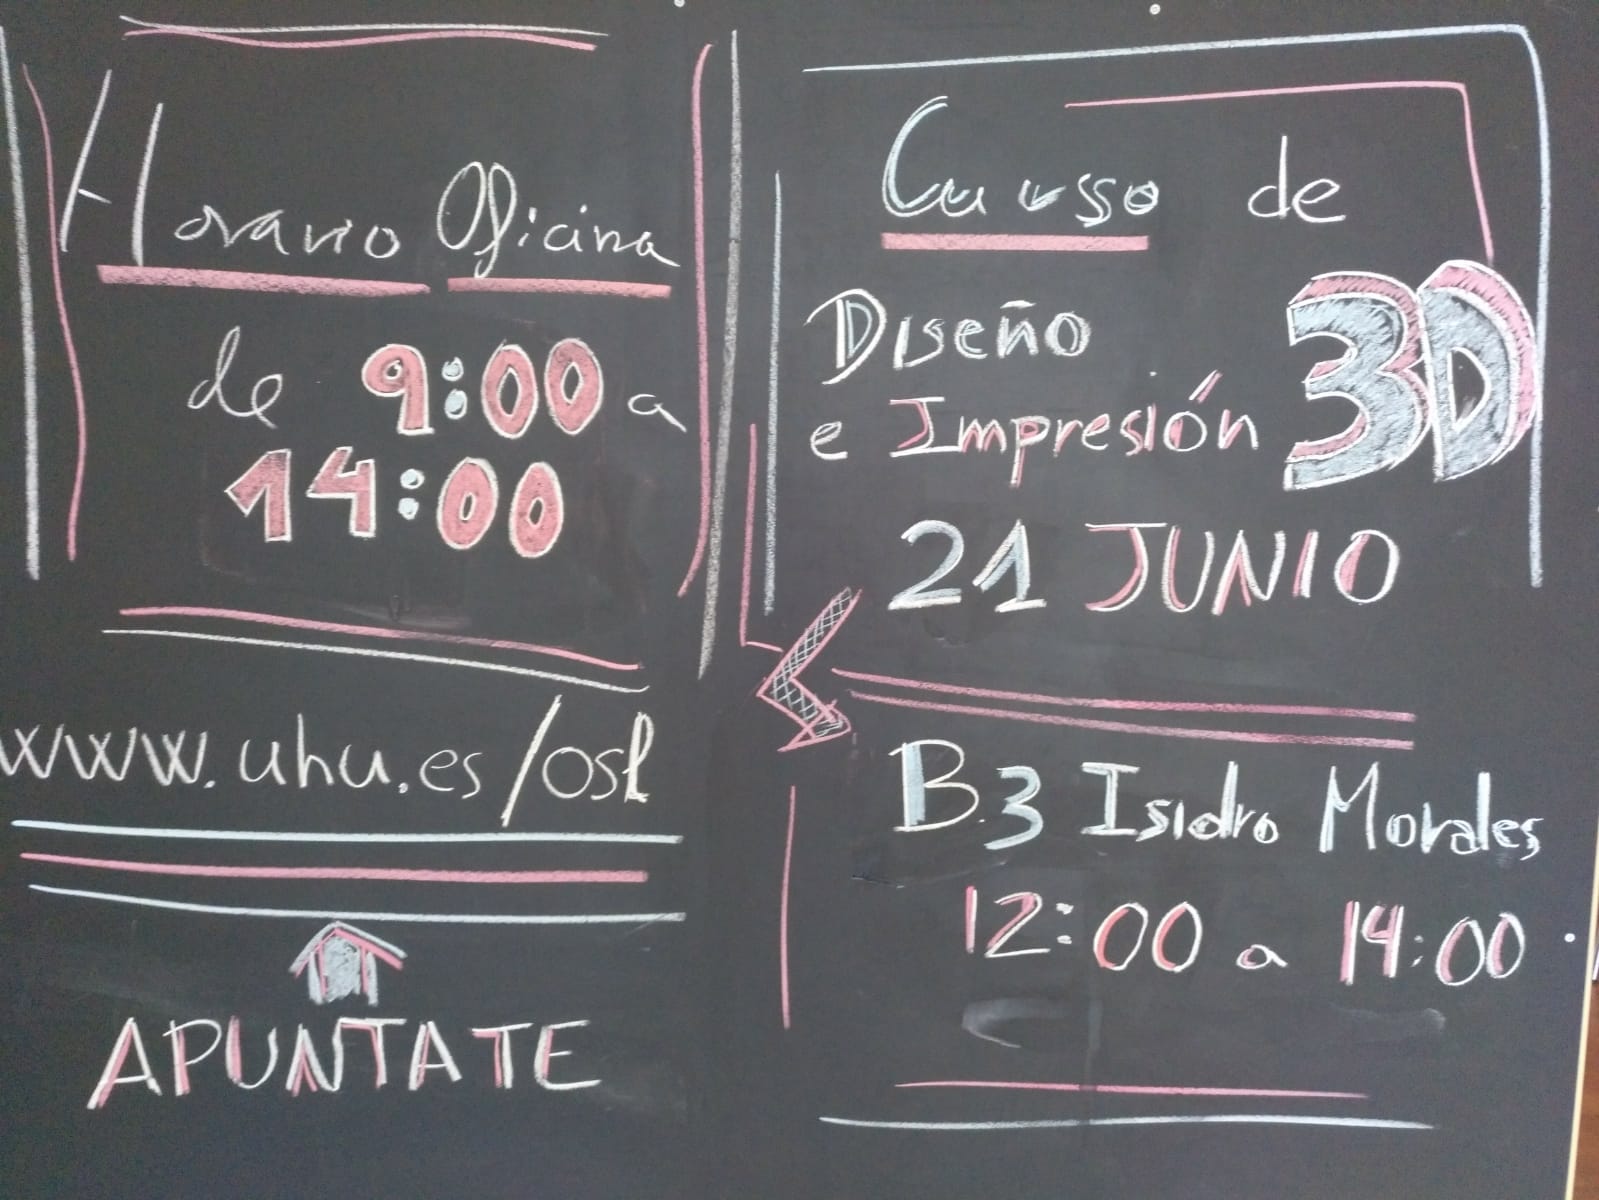 Horario Oficina
de 9:00 a
14:00
www.uhu.es/osl
APUNTATE
Curso de
Diseño
e Impresión 3D
21 JUNIO
B.3 Isidro Morales
12:00 a 14:00